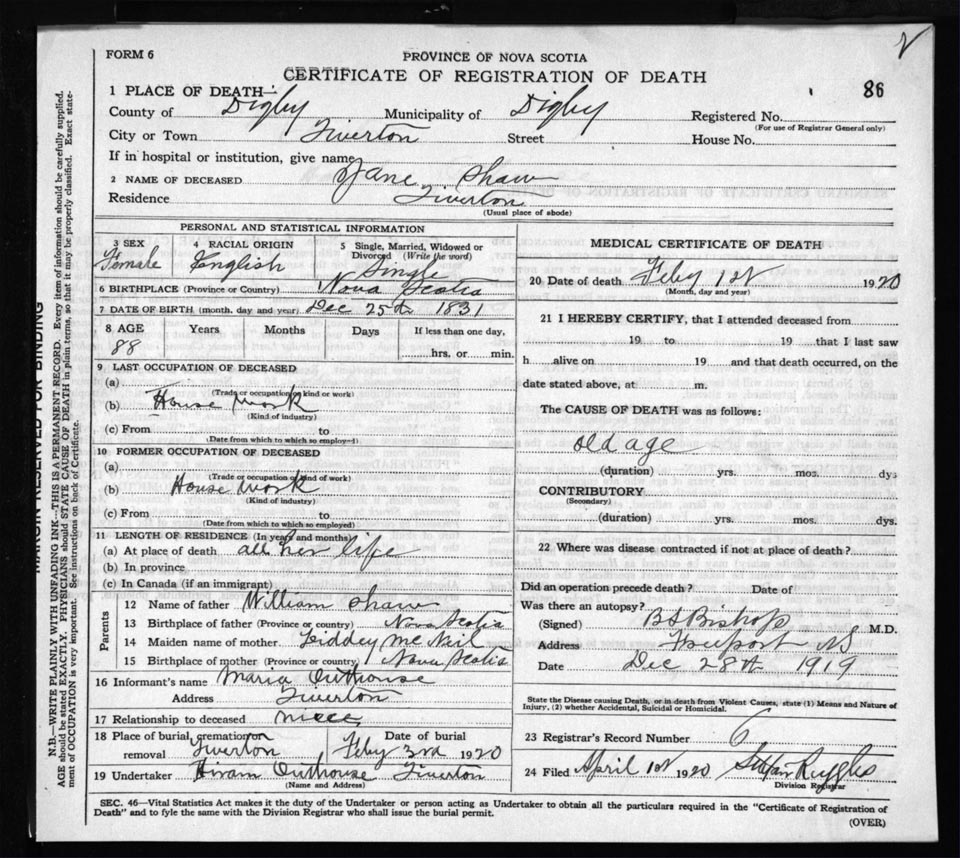 FORM 6
PROVINCE OF NOVA SCOTIA
CERTIFICATE OF REGISTRATION OF DEATH
86
1 PLACE OF DEATH-
County of Digby Municipality of Digby Registered No.
(For use of Registrar General only)
City or Town Tiverton Street House No.
If in hospital or institution, give name
2 NAME OF DECEASED Jane Shaw
Residence Tiverton
(Usual place of abode)
PERSONAL AND STATISTICAL INFORMATION
3 SEX 4 RACIAL ORIGIN 5 Single, Married, Widowed or Divorced (Write the word)
Female English Single
6 BIRTHPLACE (Province or Country) Nova Scotia
7 DATE OF BIRTH (month, day and year) Dec 25th 1831
8 AGE Years Months Days If less than one day,
88 hrs. or min.
9 LAST OCCUPATION OF DECEASED
(a)
(Trade or occupation or kind or work)
(b) House work
(Kind of industry)
(c) From to
(Date from which to which so employed)
10 FORMER OCCUPATION OF DECEASED
(a)
(Trade or occupation or kind of work)
(b) House work
(Kind of industry)
(c) From to
(Date from which to which so employed)
11 LENGTH OF RESIDENCE (In years and months)
(a) At place of death all her life
(b) In province
(c) In Canada (if an immigrant)
Parents
12 Name of father William Shaw
13 Birthplace of father (Province or country) Nova Scotia
14 Maiden name of mother Liddey McNeil
15 Birthplace of mother (Province or country) Nova Scotia
16 Informant's name Maria Outhouse
Address Tiverton
17 Relationship to deceased niece
18 Place of burial, cremation or removal Date of burial
Tiverton Feby 3rd 1920
19 Undertaker Hiram Outhouse Tiverton
(Name and Address)
MEDICAL CERTIFICATE OF DEATH
20 Date of death Feby 1st 1920
(Month, day and year)
21 I HEREBY CERTIFY, that I attended deceased from
19 to 19 that I last saw
h alive on 19 and that death occurred, on the
date stated above, at m.
The CAUSE OF DEATH was as follows:
old age
(duration) yrs. mos. dys
CONTRIBUTORY
(Secondary)
(duration) yrs. mos. dys.
22 Where was disease contracted if not at place of death?
Did an operation precede death? Date of
Was there an autopsy?
(Signed) Bishop M.D.
Address Freeport NS
Date Dec 28th 1919
State the Disease causing Death, or in death from Violent Causes, state (1) Means and Nature of
Injury, (2) whether Accidental, Suicidal or Homicidal.
23 Registrar's Record Number 6
24 Filed April 1st 1920 Ruggles
Division Registrar
SEC. 46—Vital Statistics Act makes it the duty of the Undertaker or person acting as Undertaker to obtain all the particulars required in the "Certificate of Registration of
Death" and to fyle the same with the Division Registrar who shall issue the burial permit.
(OVER)
MARGIN RESERVED FOR BINDING
N.B.—WRITE PLAINLY WITH UNFADING INK—THIS IS A PERMANENT RECORD. Every item of information should be carefully supplied.
AGE should be stated EXACTLY. PHYSICIANS should STATE CAUSE OF DEATH in plain terms, so that it may be properly classified. Exact state-
ment of OCCUPATION is very important. See instructions on back of Certificate.